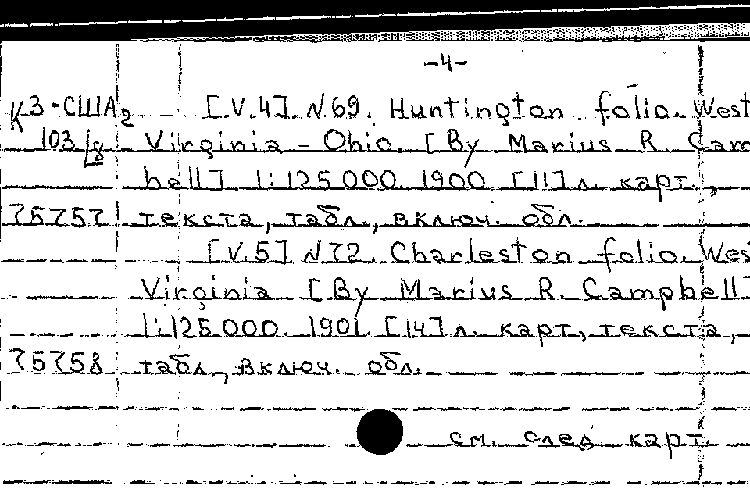 -4-
К3-США2 [V.4] N69. Huntington folio. West
103/8 Virginia - Ohio. [By Marius R. Camp
bell] 1:125 000. 1900 [11] л. карт.,
75757 текста, табл., включ. обл.
[V.5] N72. Charleston folio. Wes
Virginia [By Marius R. Campbell]
1:125.000. 1901. [14] л. карт, текста,
75758 табл., включ. обл.
см. след карт.